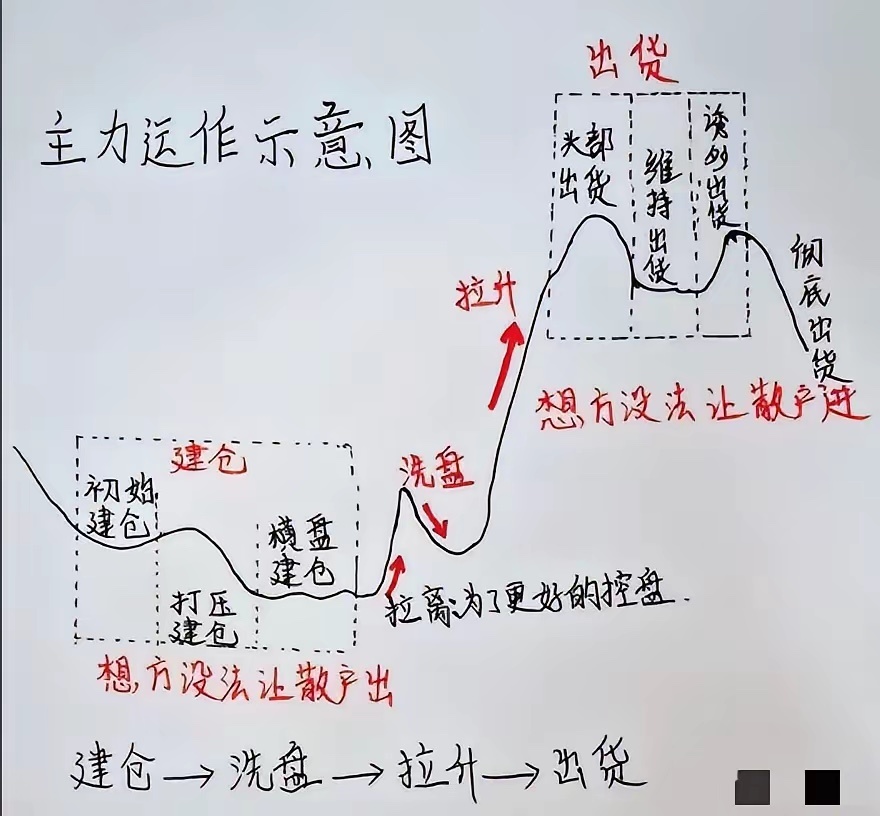 出货
主力运作示意图
头部出货
维持出货
诱多出货
彻底出货
拉升
想方设法让散户进
建仓
初始建仓
打压建仓
横盘建仓
洗盘
拉离:为了更好的控盘.
想方设法让散户出
建仓→洗盘→拉升→出货